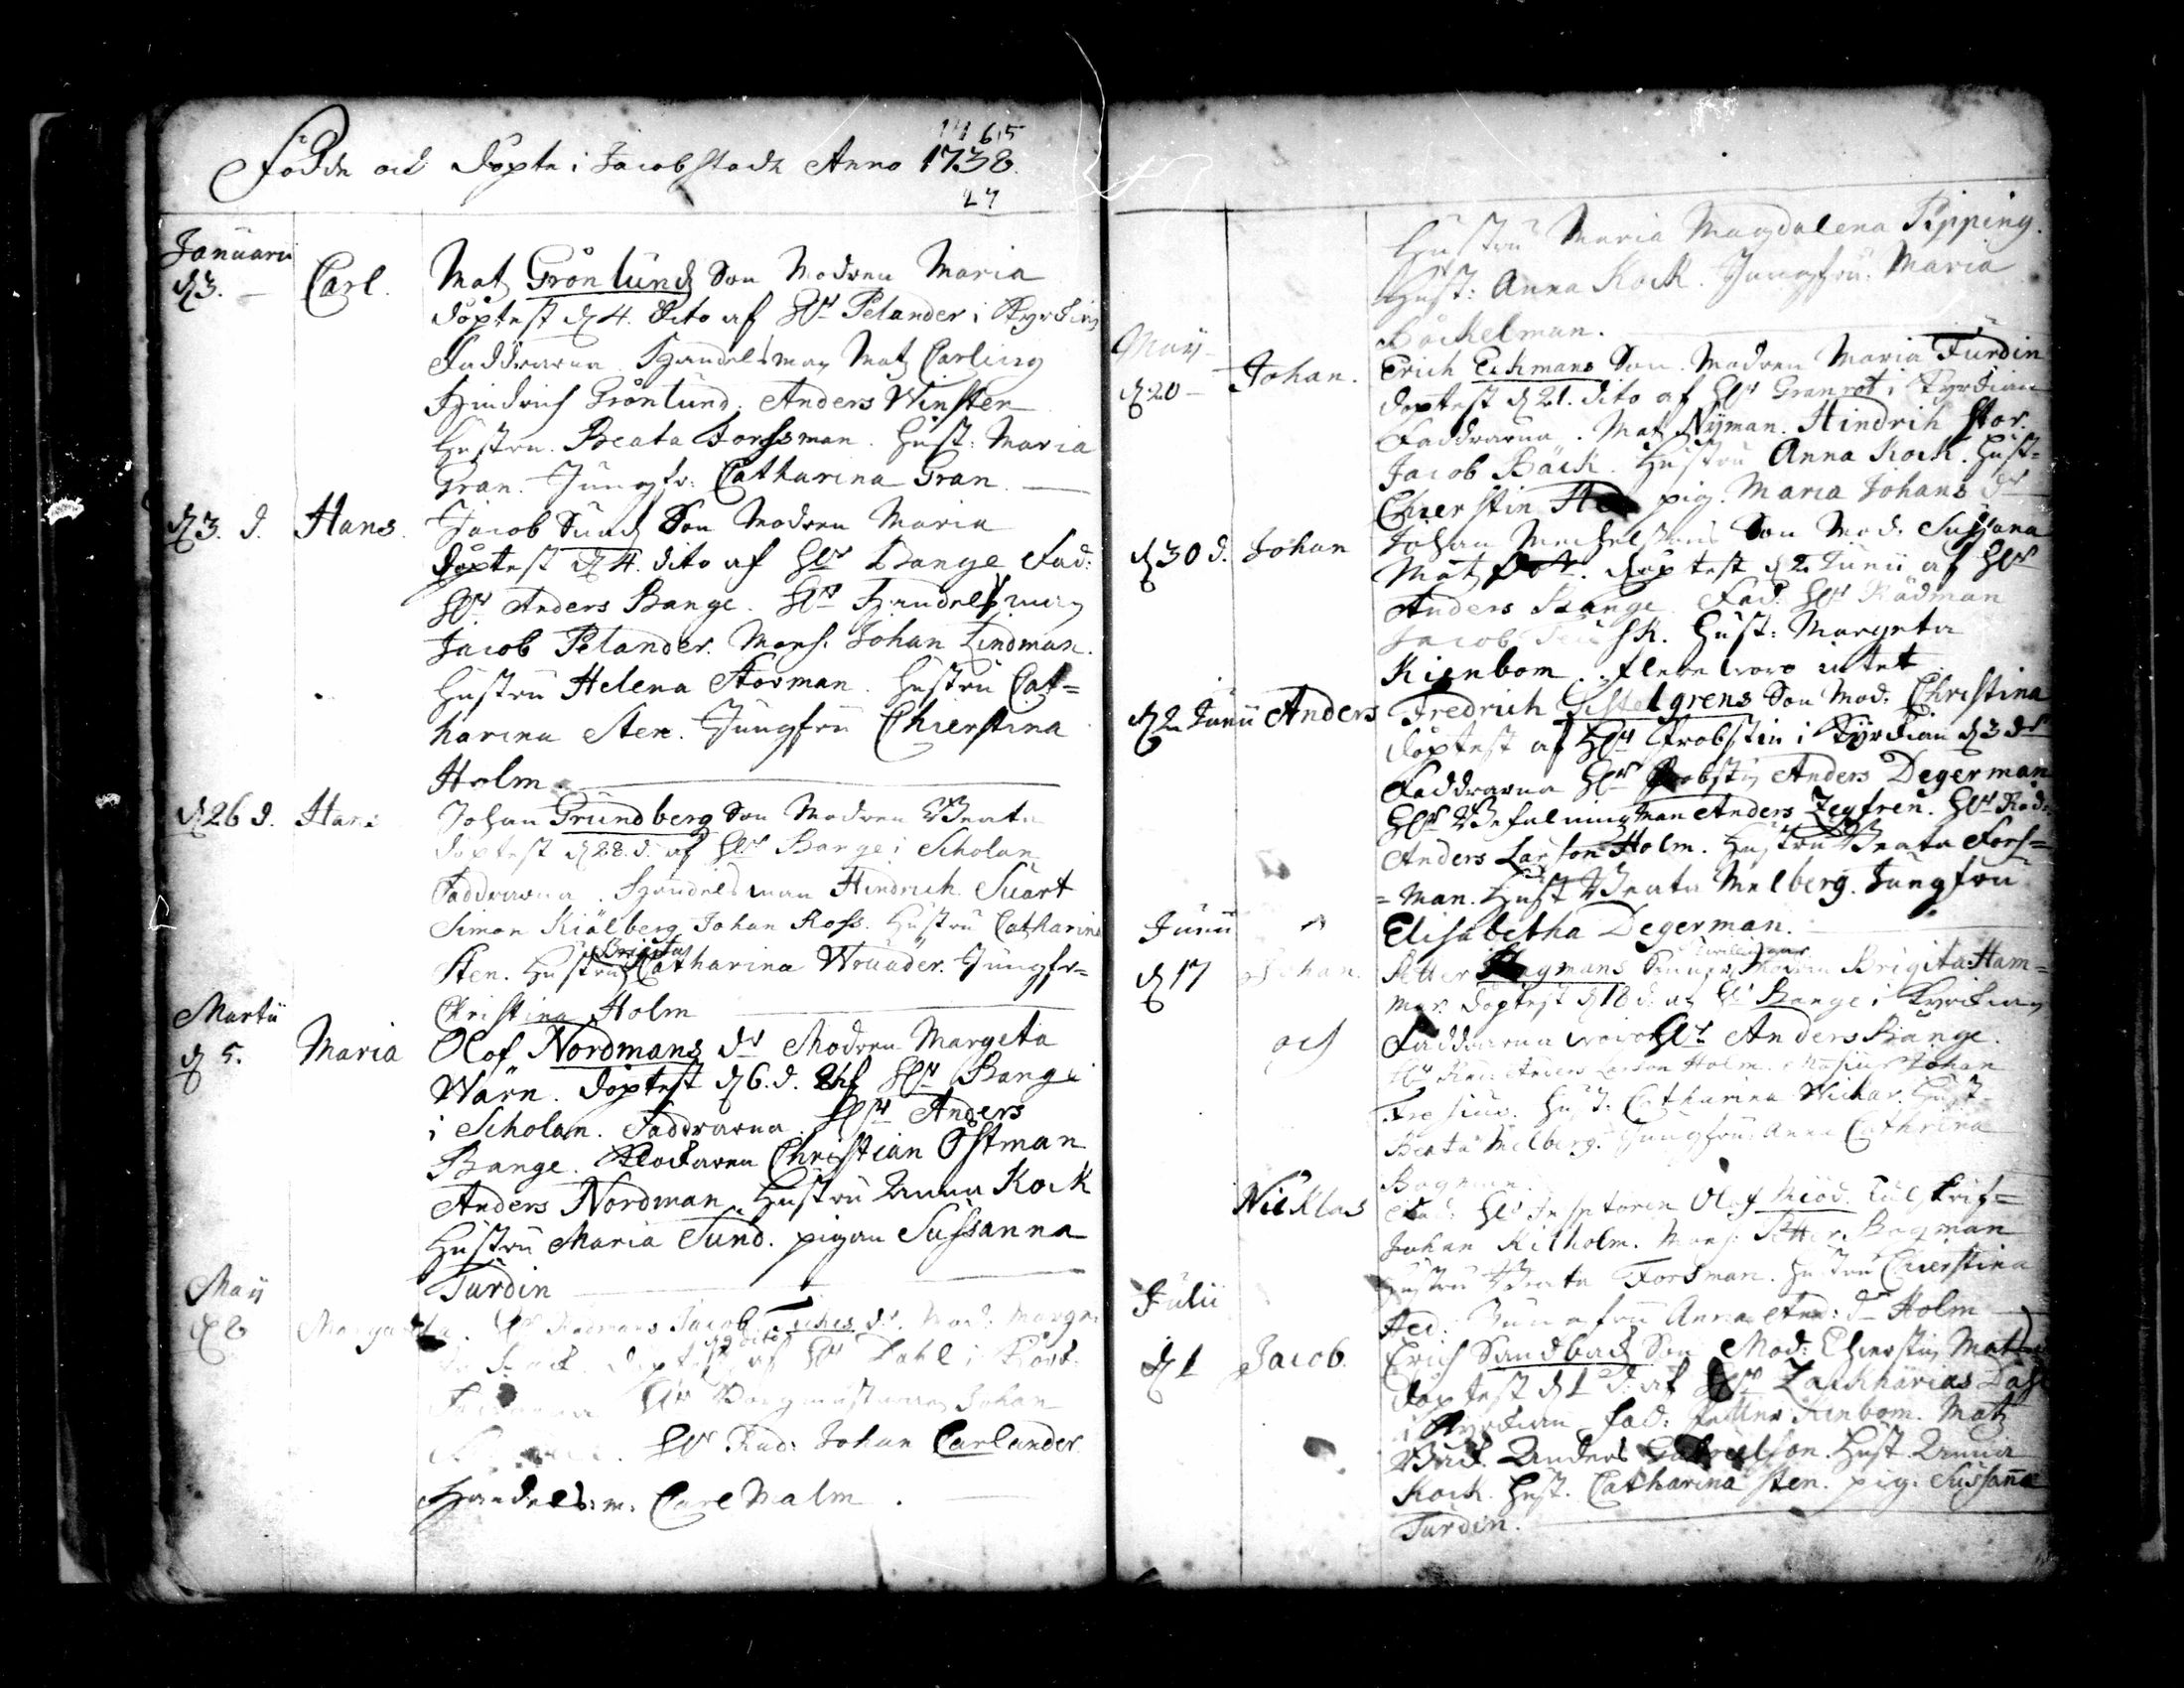 Födde och Döpte i Jacobstadh Anno 1738.
27
Januarii
d 3. Carl. Matz Grönlunds Son Modren Maria
döptest d 4. dito af Hr Pelander i Kyrckian
Faddrarna Handelsman Matz Carling
Hindrich Grönlund. Anders Winsten
Hustru Beata Forssman. Hust: Maria
Gran. Jungfr: Catharina Gran.
d 3. d. Hans. Jacob Sunds Son Modren Maria
döptest d 4. dito af Hr Bange Fad:
Hr Anders Bange. Hr Handelsman
Jacob Pelander. Mons. Johan Lindman.
Hustru Helena Storman. Hustru Cat=
harina Sten. Jungfru Chierstina
Holm.
d 26 d. Hans Johan Grundberg Son Modren Beata
döptest d 28. d. af Hr Bange i Scholan
Faddrarna. Handelsman Hindrich Suart
Simon Kiälberg Johan Ross. Hustru Catharina
Sten. Hustru Brigita Catharina Wruader. Jungfr=
Christina Holm
Martii
d 5. Maria Olof Nordmans dr Modren Margeta
Wärn. döptest d 6. d. af Hr Bange
i Scholan. Faddrarna. Hr Anders
Bange. Klockaren Christian Östman
Anders Nordman. Hustru Anna Kock
Hustru Maria Sund. pigan Sussanna
Turdin
Maij
d 8 Margareta. Hr Rådmans Jacob dr. Mod: Marge
döptest d 9 dito af Hr Dahl i Kyrck.
Hr Borgmästaren Johan
Hr Råd: Johan Carlander
Handels:m: Carl Malm.
Hustru Maria Magdalena Pipping.
Hust: Anna Kock. Jungfru: Maria
Böckelman.
Maij
d 20 Johan. Erich Eckmans Son. Modren Maria Turdin
döptest d 21. dito af Hr Granrot i Kyrckian
Faddrarna. Matz Nyman. Hindrih Stor.
Jacob Bäck. Hustru Anna Kock. Hust=
Chierstin pig. Maria Johans dr
d 30 d. Johan Johan Mechelssons Son Mod: Susana
Matz dotr. döptest d 2 Junii af Hr
Anders Bange. Fad: Hr Rådman
Jacob. Hust: Margeta
Kienbom. flere woro intet
d 2 Junii Anders Fredrich Gisselgrens Son Mod: Christina
döptest af Hr Probsten i Kyrckian d 3 dr
Faddrarna Hr Probsten Anders Degerman
Hr Befalningman Anders Zegfren. Hr Råd:
Anders Larsson Holm. Hustru Beata Fors=
=man. Hust Beata Melberg. Jungfru
Elisabetha Degerman.
Junii
d 17 Johan. Petter Bagmans Söner Modren Brigita Ham=
mar döptest d 18 d. af Hr Bange i Kyrckian
och Faddrarna woro Hr Anders Bange.
Hr Råd: Anders Larson Holm. Johan
Hust: Catharina Wichar. Hust=
Beata Melberg. Jungfru: Anna Cathrina
Bagman.
Nicklas Fad: Hr Olof Riöd. Tulskrif=
Johan Kilholm. Mons: Petter Bagman
Hustru Beata Forsman. Hustru Chierstina
Jungfru Anna And: dr Holm
Julii
d 1 Jacob. Erich Sandbacks Son Mod: Chierstin Matz
döptest d 2 d: af Hr Zackharias Dahl
i Kyrckian fad: Petter Kinbom. Matz
Bäck. Anders Gabrielson. Hust Anna
Kock. Hust. Catharina Sten. pig: Sussana
Turdin.